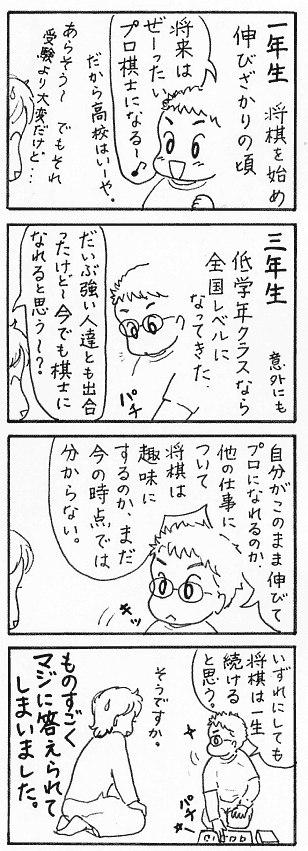 一年生
将棋を始め
伸びざかりの頃
将来は
ぜーったい
プロ棋士になるー♪
だから高校はいーや。
あらそう〜 でもそれ
受験より大変だけど…
三年生
意外にも
低学年クラスなら
全国レベルに
なってきた
パチ
だいぶ強い人達とも出合
ったけど〜今でも棋士に
なれると思う〜?
自分がこのまま伸びて
プロになれるのか、
他の仕事に
ついて
将棋は
趣味に
するのか、まだ
今の時点では
分からない。
キッ
いずれにしても
将棋は一生
続ける
と思う。
パチ
そうですか。
ものすごく
マジに答えられて
しまいました。